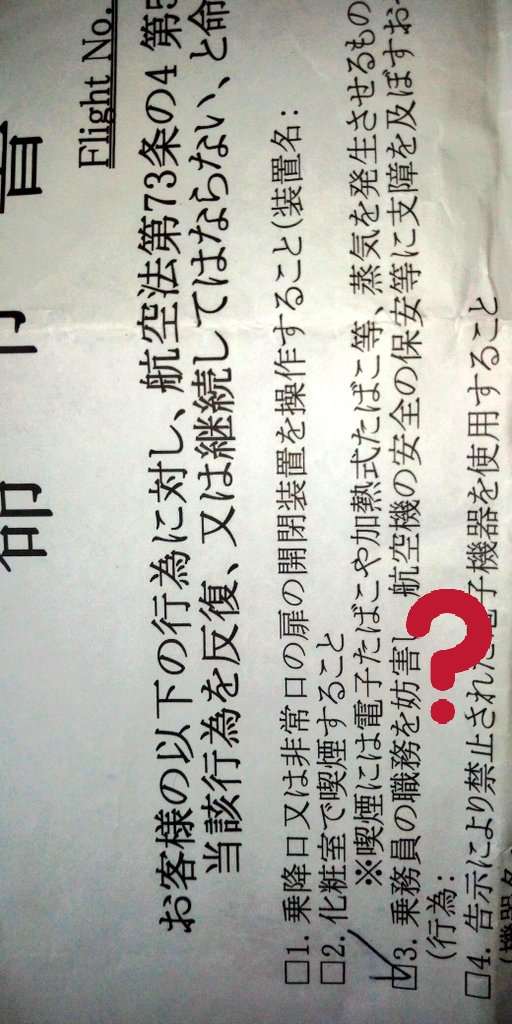 命 令 書
Flight No.
お客様の以下の行為に対し、航空法第73条の4 第5
当該行為を反復、又は継続してはならない、と命
□1. 乗降口又は非常口の扉の開閉装置を操作すること(装置名:
□2. 化粧室で喫煙すること
※喫煙には電子たばこや加熱式たばこ等、蒸気を発生させるもの
☑3. 乗務員の職務を妨害し 航空機の安全の保安等に支障を及ぼすお
(行為:
?
□4. 告示により禁止された電子機器を使用すること